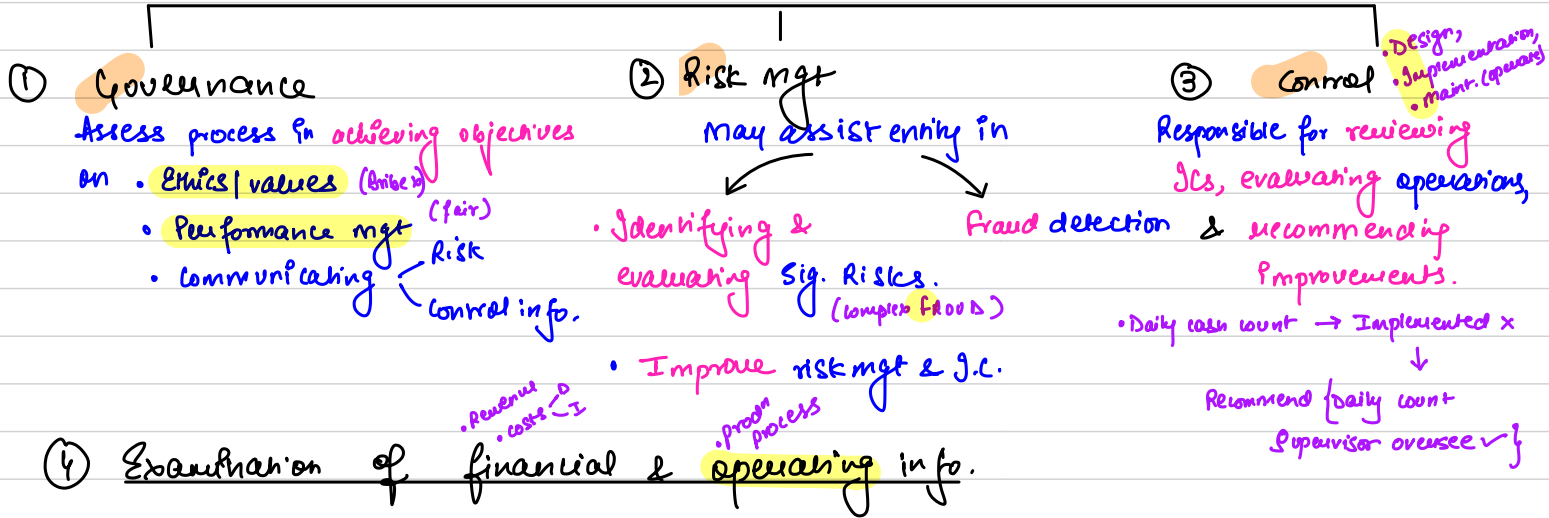 ① Governance
Assess process in achieving objectives
on • Ethics/values (Bribe x)
• Performance mgt (fair)
• Communicating
Risk
Control info.
② Risk mgt
May assist entity in
• Identifying &
evaluating Sig. Risks.
(complex FRAUD)
• Improve risk mgt & I.C.
Fraud detection
③ Control
• Design,
• Implementation,
• maint. (operate)
Responsible for reviewing
ICs, evaluating operations,
& recommending
improvements.
• Daily cash count → Implemented x
↓
Recommend {Daily count
Supervisor oversee ✓}
• Revenue
• costs D
I
• prodn process
④ Examination of financial & operating info.